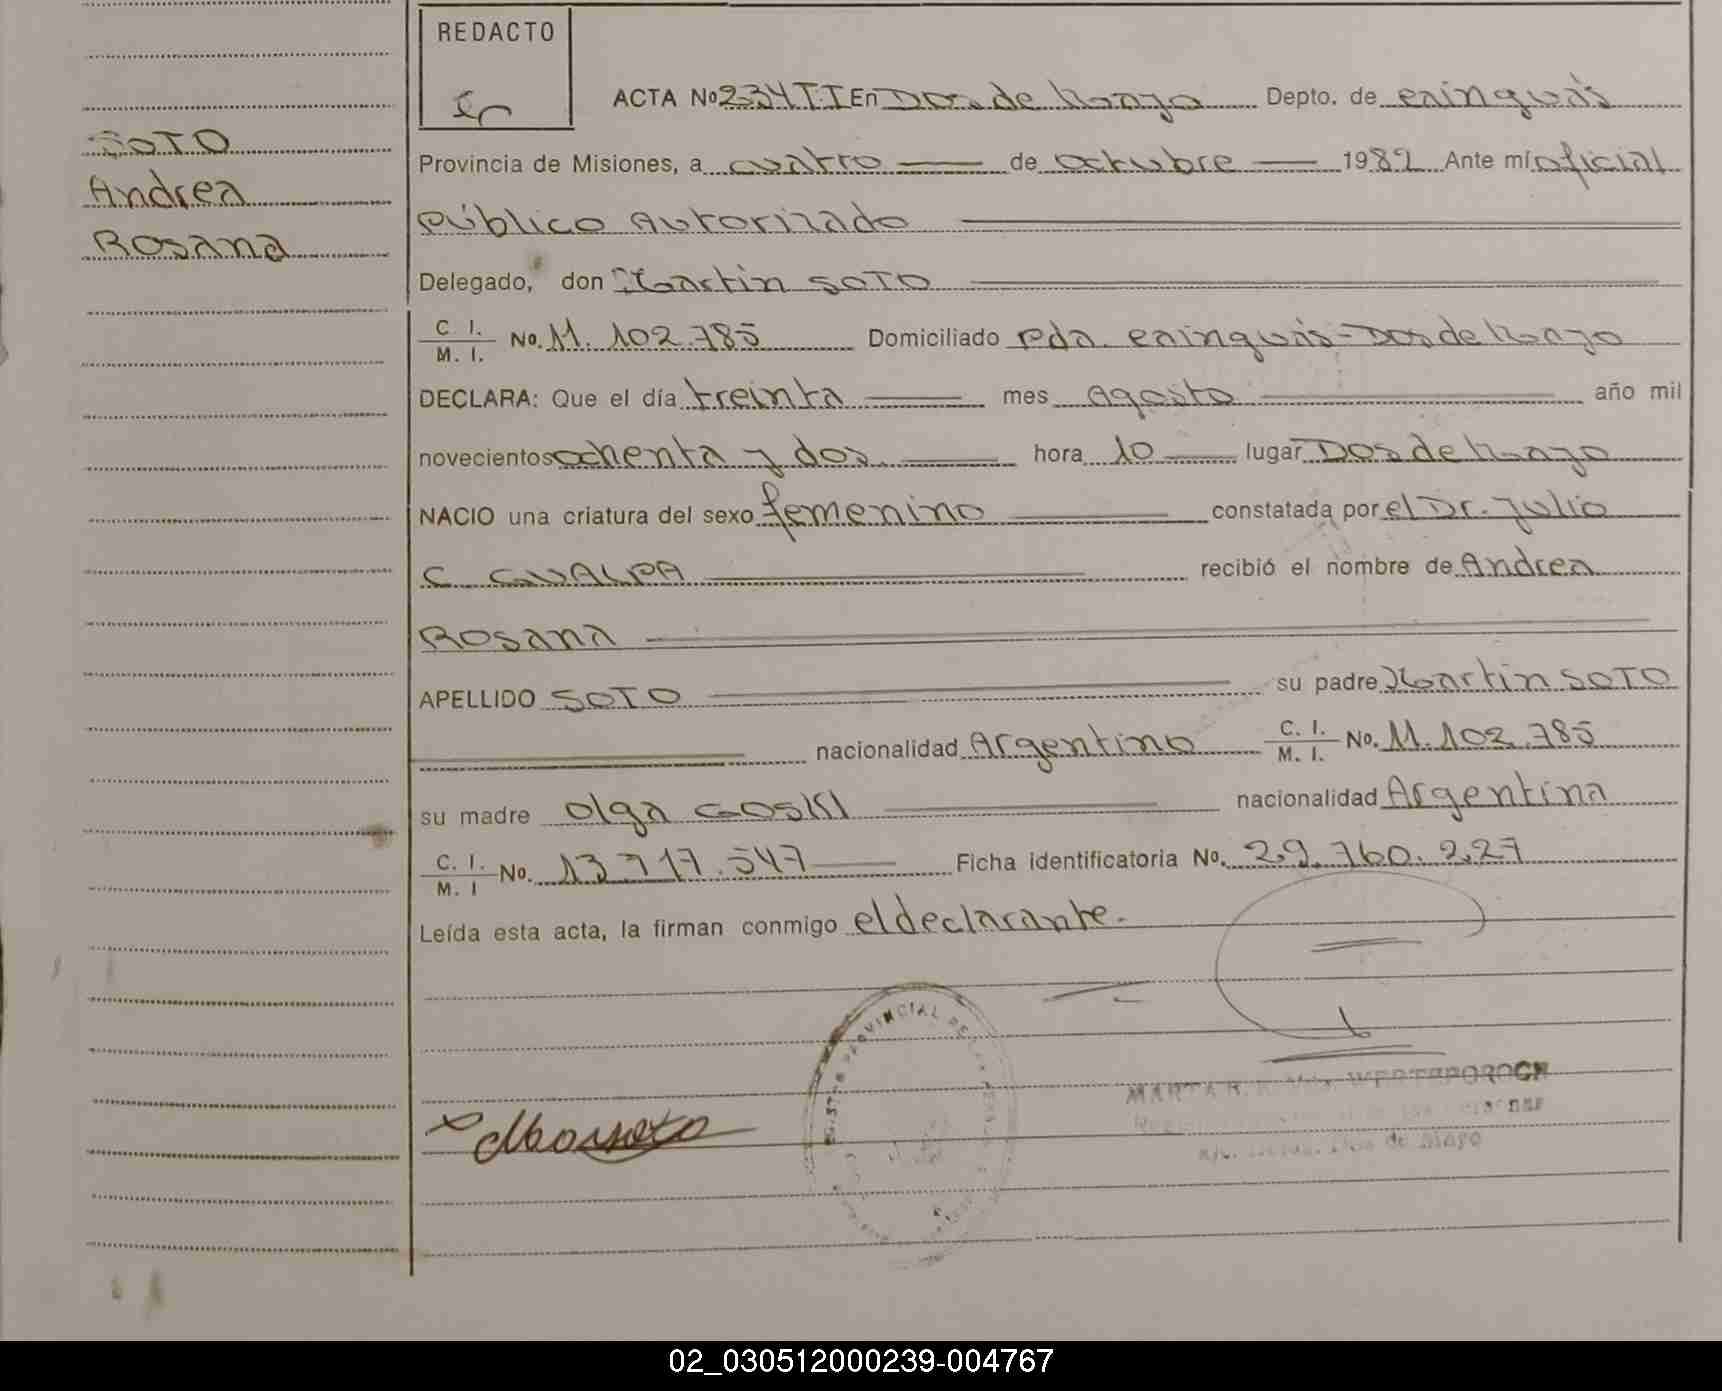 REDACTO
ACTA No 234 T.I En Dos de Mayo Depto. de Cainguás
SOTO
Andrea
Rosana
Provincia de Misiones, a cuatro de octubre 1982 Ante mí oficial
Público Autorizado
Delegado, don Martin SOTO
C. I. / M. I. No. 11.102.785 Domiciliado Pda. Cainguás - Dos de Mayo
DECLARA: Que el día treinta mes Agosto año mil
novecientos ochenta y dos hora 10 lugar Dos de Mayo
NACIO una criatura del sexo femenino constatada por el Dr. Julio
C. GUALPA recibió el nombre de Andrea
Rosana
APELLIDO SOTO su padre Martin SOTO
nacionalidad Argentino C. I. / M. I. No. 11.102.785
su madre Olga GOSKI nacionalidad Argentina
C. I. / M. I No. 13.717.547 Ficha identificatoria No. 29.760.227
Leída esta acta, la firman conmigo el declarante.
PROVINCIAL DE LAS
MARTA
Dos de Mayo
02_030512000239-004767